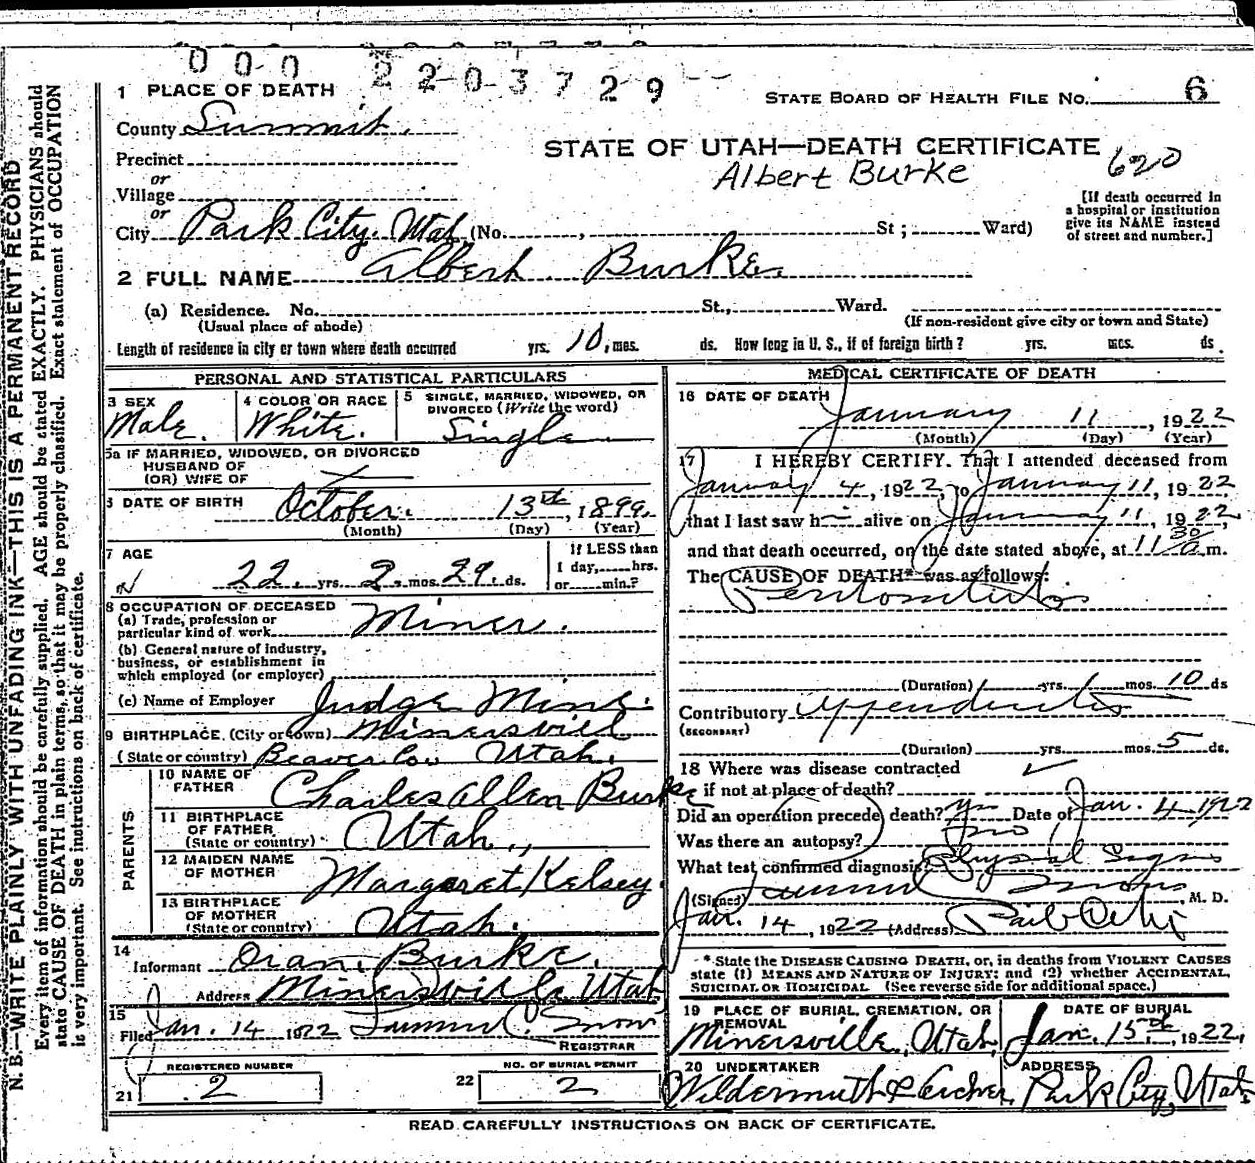 000 2203729
1 PLACE OF DEATH
STATE BOARD OF HEALTH FILE NO. 6
County Summit.
STATE OF UTAH—DEATH CERTIFICATE
620
Albert Burke
Precinct
or
Village
or
City Park City. Utah (No. , St ; Ward)
[If death occurred in
a hospital or institution
give its NAME instead
of street and number.]
2 FULL NAME Albert Burke
(a) Residence. No. St., Ward.
(Usual place of abode)
(If non-resident give city or town and State)
Length of residence in city or town where death occurred yrs. 10, mos. ds. How long in U. S., if of foreign birth ? yrs. mos. ds.
PERSONAL AND STATISTICAL PARTICULARS
3 SEX
Male.
4 COLOR OR RACE
White.
5 SINGLE, MARRIED, WIDOWED, OR
DIVORCED (Write the word)
Single
5a IF MARRIED, WIDOWED, OR DIVORCED
HUSBAND OF
(OR) WIFE OF
6 DATE OF BIRTH October. 13th, 1899.
(Month) (Day) (Year)
7 AGE
22. yrs. 2. mos. 29. ds.
If LESS than
1 day, hrs.
or min.?
8 OCCUPATION OF DECEASED
(a) Trade, profession or
particular kind of work Miner.
(b) General nature of industry,
business, or establishment in
which employed (or employer)
(c) Name of Employer Judge Mine.
9 BIRTHPLACE. (City or town) Minersvill
(State or country) Beaver Co. Utah.
PARENTS
10 NAME OF
FATHER Charles Allen Burke
11 BIRTHPLACE
OF FATHER
(State or country) Utah.,
12 MAIDEN NAME
OF MOTHER Margaret Kelsey.
13 BIRTHPLACE
OF MOTHER
(State or country) Utah.
14
Informant Oran Burke.
Address Minersville Utah
15
Filed Jan. 14 1922 C. Snow
REGISTRAR
REGISTERED NUMBER
21 2
NO. OF BURIAL PERMIT
22 2
MEDICAL CERTIFICATE OF DEATH
16 DATE OF DEATH
January 11, 1922
(Month) (Day) (Year)
17 I HEREBY CERTIFY. That I attended deceased from
January 4, 1922, to January 11, 1922
that I last saw h alive on January 11, 1922,
and that death occurred, on the date stated above, at 11 30 a. m.
The CAUSE OF DEATH* was as follows:
Peritonitis
(Duration) yrs. mos. 10 ds
Contributory Appendicitis
(SECONDARY)
(Duration) yrs. mos. 5 ds.
18 Where was disease contracted
if not at place of death? ✓
Did an operation precede death? yes Date of Jan. 4 1922
Was there an autopsy? no
What test confirmed diagnosis? Physical Signs
(Signed) Snow, M. D.
Jan. 14, 1922 (Address) Park City
* State the DISEASE CAUSING DEATH, or, in deaths from VIOLENT CAUSES
state (1) MEANS AND NATURE OF INJURY: and (2) whether ACCIDENTAL,
SUICIDAL OR HOMICIDAL (See reverse side for additional space.)
19 PLACE OF BURIAL, CREMATION, OR
REMOVAL
Minersville, Utah,
DATE OF BURIAL
Jan. 15th, 1922.
20 UNDERTAKER
Wildermuth & Archer.
ADDRESS
Park City, Utah.
READ CAREFULLY INSTRUCTIONS ON BACK OF CERTIFICATE.
N. B.—WRITE PLAINLY WITH UNFADING INK—THIS IS A PERMANENT RECORD
Every item of information should be carefully supplied. AGE should be stated EXACTLY. PHYSICIANS should
state CAUSE OF DEATH in plain terms, so that it may be properly classified. Exact statement of OCCUPATION
is very important. See instructions on back of certificate.